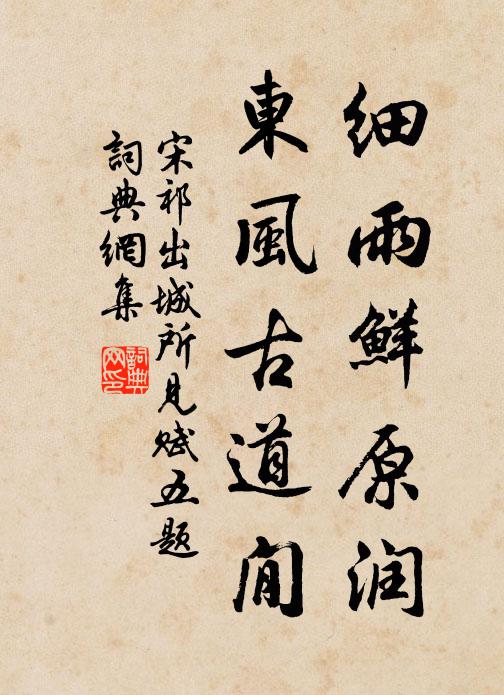 细雨鮮原润
東風古道閒
宋祁出城所見赋五题
詞典網集
詞典網印